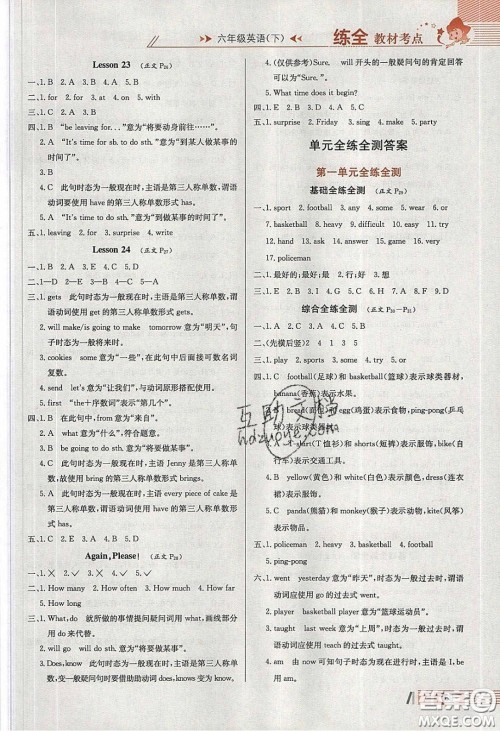 六年级英语(下)
练全 教材考点
Lesson 23 (正文 P26)
一、1. B 2. A 3. B 4. C 5. A
二、1. A 2. C 3. A 4. B
三、1. C 2. A 3. B 4. A
四、1. B "be leaving for..."意为"将要动身前往……"。
2. A "It's time for sb. to do sth."意为"到某人做某事的
时间了"。
3. B
4. C 此句时态为一般现在时,主语是第三人称单数,谓
语动词使用 have 的第三人称单数形式 has。
5. A "It's time to do sth."意为"到做某事的时间了"。
五、1. leaving 2. for 3. surprise 4. write
Lesson 24 (正文 P27)
一、1. A 2. B 3. A 4. C 5. D
二、1—C 2—D 3—B 4—E 5—A
三、1. gets 此句时态为一般现在时,主语是第三人称单数,谓
语动词使用 get 的第三人称单数形式 gets。
2. will make/is going to make tomorrow 意为"明天",句
子时态为一般将来时。
3. cookies some 意为"一些",在此句中后面接可数名词
复数。
4. send let's 意为"让我们",与动词原形搭配使用。
5. first "the＋序数词"表示"第几个"。
四、1. B 在此句中,from 意为"来自"。
2. A what 意为"什么",符合题意。
3. B be going to do sth. 意为"将要做某事"。
4. B 此句时态为一般现在时,主语 Jenny 是第三人称单
数,故使用 bring 的第三人称单数形式 brings。
5. A 此句时态为一般现在时,主语 every piece of cake 是
第三人称单数,故谓语动词使用 have 的第三人称单
数形式 has。
五、1. C 2. E 3. A 4. B 5. D
Again, Please! (正文 P28)
一、1. × 2. √ 3. √ 4. × 5. ×
二、1. How many 2. How often 3. How much 4. How far
5. How long
三、1. What, do 就所做的事情提问疑问词用 what,画线部分
用 do 来代替。
2. will go will do sth. 意为"将要做某事"。
3. Does, know 此句时态为一般现在时,主语是第三人称单数,
变一般疑问句时要借助助动词 does,其后动词用原形。
4. (仅供参考) Sure. will 开头的一般疑问句的肯定回答
可以为"Sure."。
5. What time does it begin?
四、1. E 2. B 3. D 4. A 5. C
五、1. surprise 2. Friday 3. sing 4. make 5. write
单元全练全测答案
第一单元全练全测
基础全练全测 (正文 P29)
一、1. sport 2. football 3. any 4. some 5. wear 6. or
7. basketball 8. heavy 9. difficult 10. easy 11. try
12. hand 13. catch 14. ask 15. answer 16. with
17. policeman
二、1. 最好的;最好 2. 行;好 3. 想
三、1. × 2. √ 3. × 4. √
综合全练全测 (正文 P30～P31)
一、1. C 2. A 3. B 4. C 5. B
二、(先横后竖) 1. B D 2. A E 3. C F
三、1. play 2. sports 3. some 4. start 5. try
四、1. C football(足球)和 basketball(篮球)表示球类器材,
banana(香蕉)表示水果。
2. B bread(面包)和 egg(鸡蛋)表示食物,ping-pong(乒乓
球)表示球类器材。
3. A T-shirt(T恤衫)和 shorts(短裤)表示服装,bike(自
行车)表示交通工具。
4. B yellow(黄色)和 white(白色)表示颜色,dress(连衣
裙)表示服饰。
5. C panda(熊猫)和 monkey(猴子)表示动物,kite(风筝)
表示物品。
五、1. policeman 2. heavy 3. basketball 4. football
5. with
六、1. went yesterday 意为"昨天",时态为一般过去时,谓语
动词应使用 go 的过去式 went。
2. player basketball player 意为"篮球运动员"。
3. taught last week 意为"上周",时态为一般过去时,谓
语动词应使用 teach 的过去式 taught。
4. am 由 now 可知句子时态为现在进行时,主语为 I,be
动词用 am。
互助文档
hdzuoye.com
答案圈
MXQE.COM